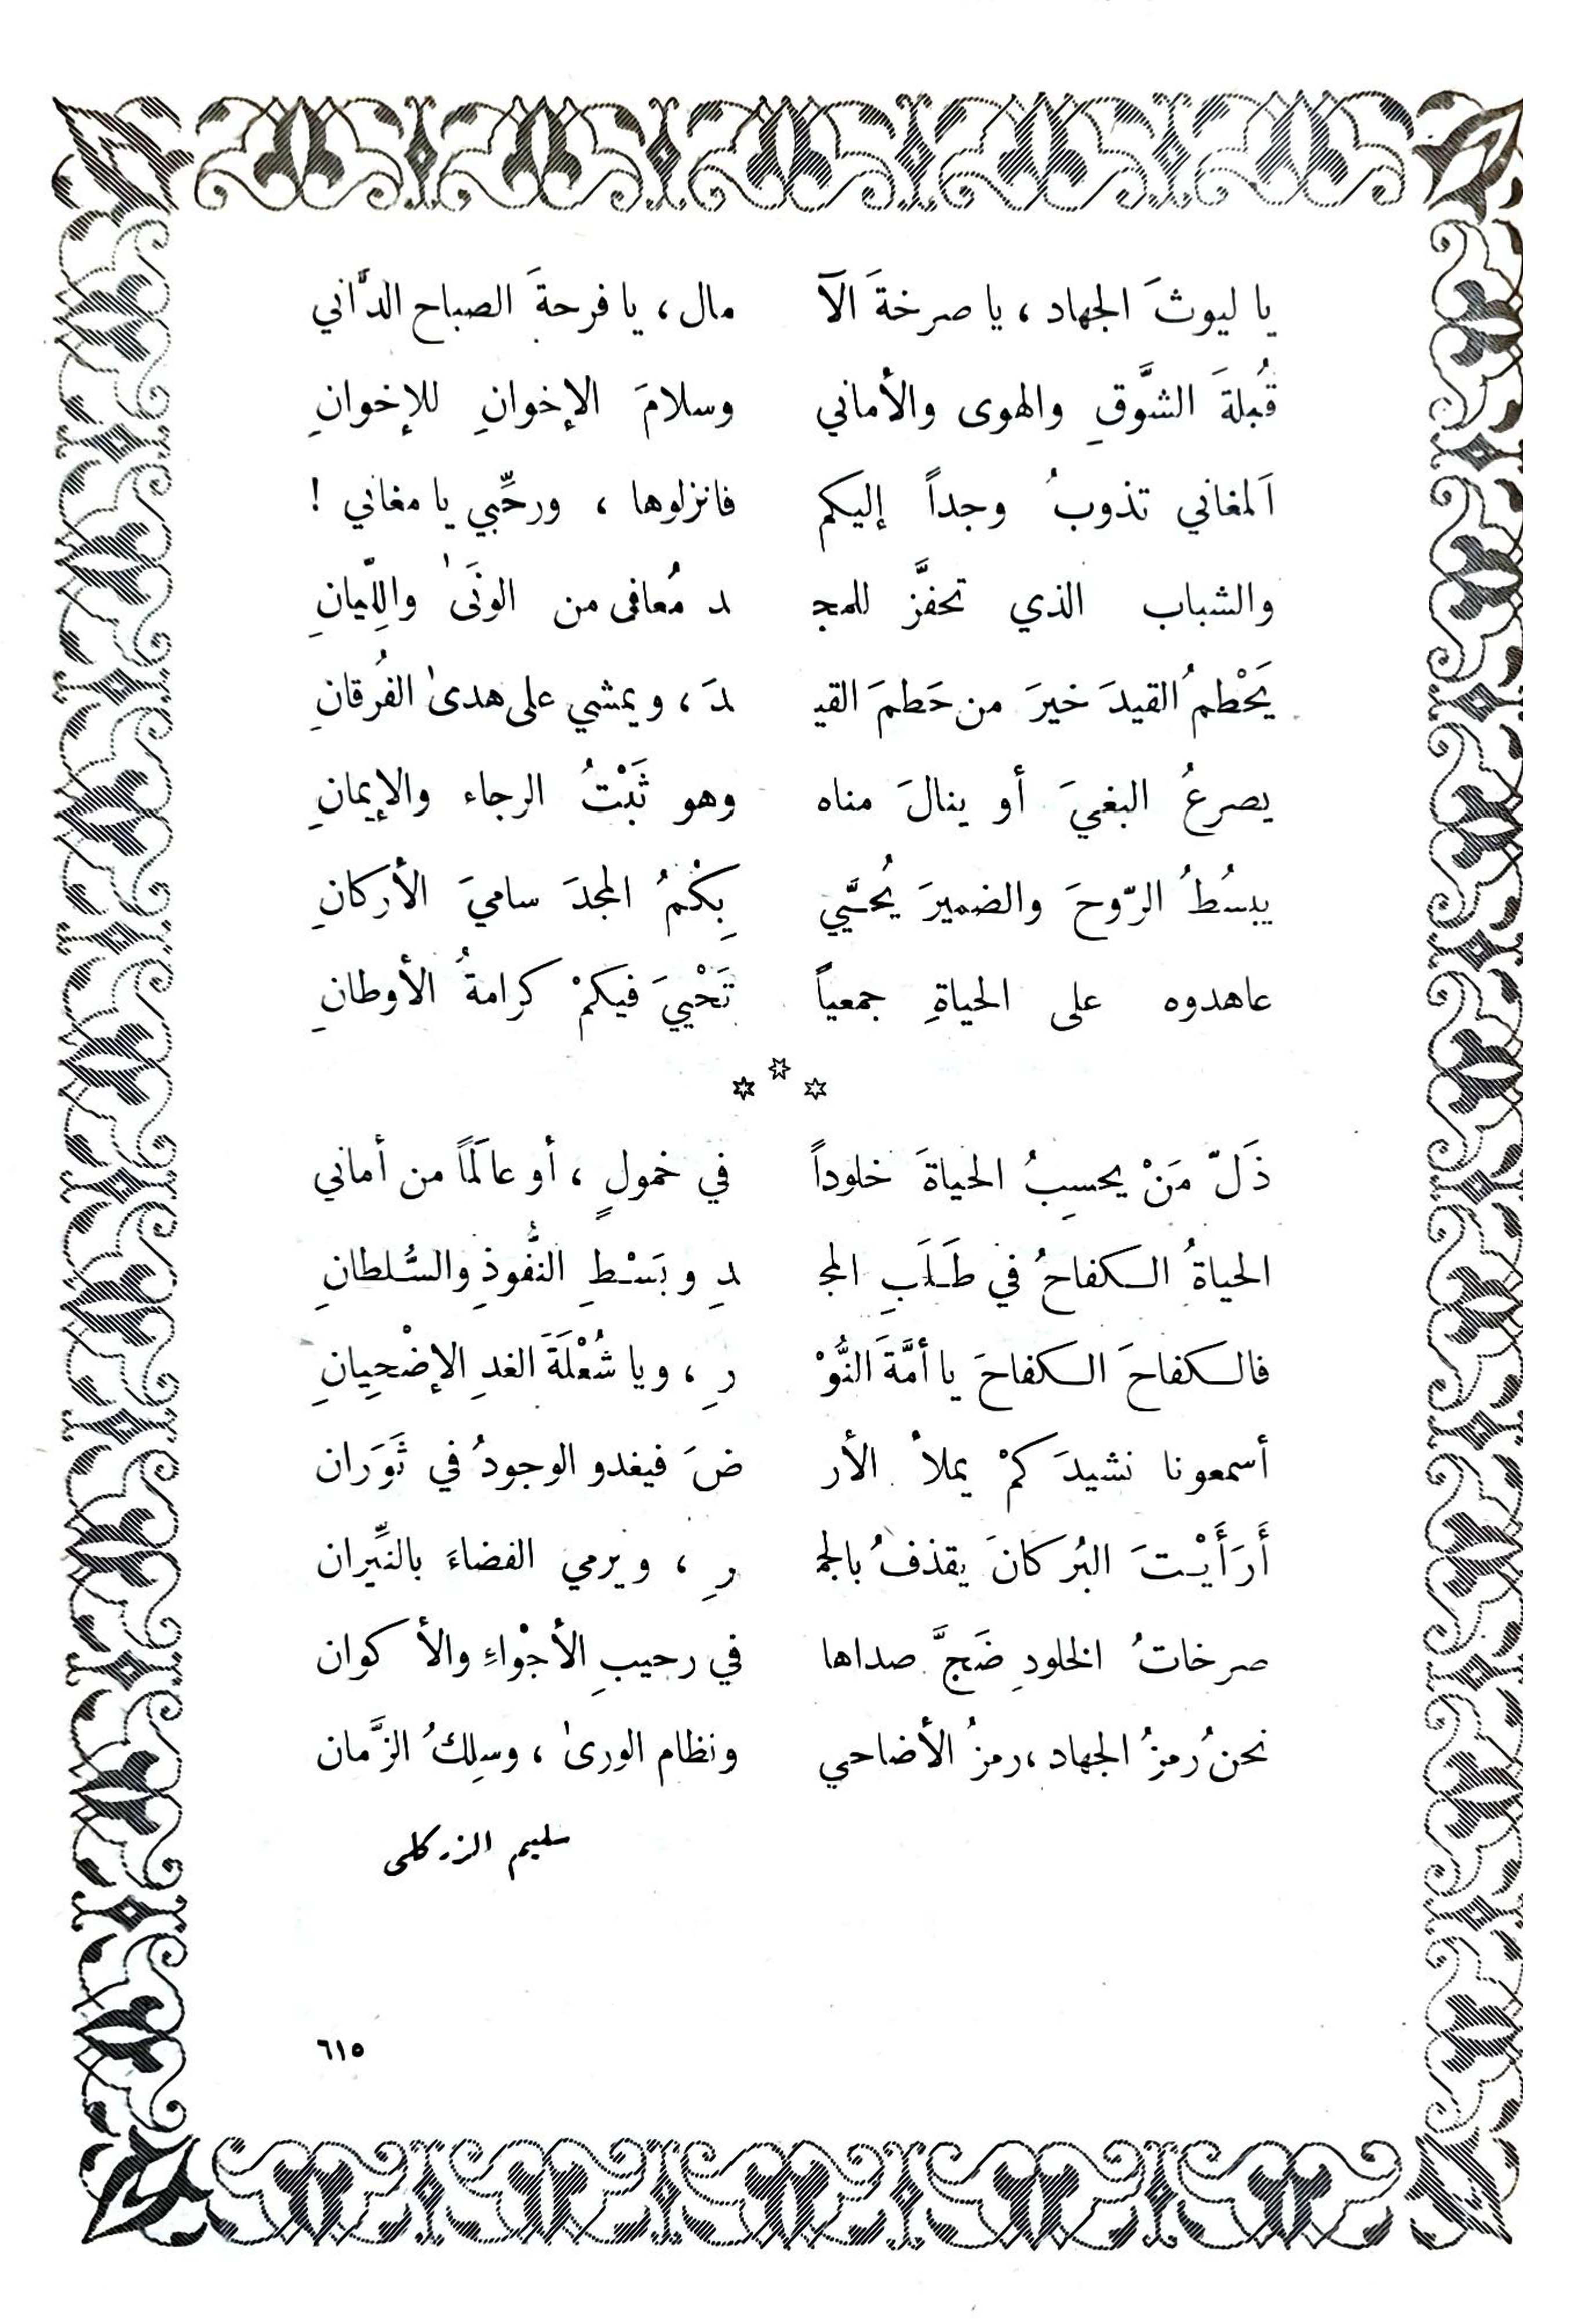 يا ليوثَ الجهاد ، يا صرخةَ الآ مال ، يا فرحةَ الصباح الدَّاني
قُبلةَ الشَّوقِ والهوى والأماني وسلامَ الإخوانِ للإخوانِ
اَلمغاني تذوبُ وجداً إليكم فانزلوها ، ورحِّبي يا مغاني !
والشباب الذي تحفَّز للمجـ ـد مُعافى من الونَىٰ واللِّيانِ
يَحْطمُ القيدَ خيرَ من حَطمَ القيـ ـدَ ، ويمشي على هدىٰ الفُرقانِ
يصرعُ البغيَ أو ينالَ مناه وهو ثَبْتُ الرجاء والإيمانِ
يبسُطُ الرّوحَ والضميرَ يُحيَّي بِكْمُ المجدَ ساميَ الأركانِ
عاهدوه على الحياةِ جمعياً تَحْييَ فيكمْ كرامةُ الأوطانِ
* * *
ذَلّ مَنْ يحسِبُ الحياةَ خلوداً في خمولٍ ، أو عالَماً من أماني
الحياةُ الكفاحُ في طَلَبِ المجـ ـدِ وبَسْطِ النُّفوذِ والسُّلطانِ
فالكفاحَ الكفاحَ يا أمَّةَ النُّوْ رِ ، ويا شُعْلَةَ الغدِ الإضْحِيانِ
أسمعونا نشيدَكمْ يملأ الأر ضَ فيغدو الوجودُ في ثَوَران
أَرَأَيْتَ البُركانَ يقذفُ بالجمـ ـرِ ، ويرمي الفضاءَ بالنِّيران
صرخاتُ الخلودِ ضَجَّ صداها في رحيبِ الأجْواءِ والأكوان
نحنُ رمزُ الجهاد ، رمزُ الأضاحي ونظام الورىٰ ، وسِلكُ الزَّمان
سليم الزركلى
٦١٥